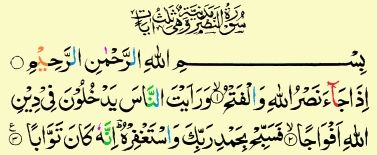 سُوْرَةُ النَّصْرِ مَدَنِيَّةٌ وَّهِيَ ثَلٰثُ اٰيَاتٍ
بِسْمِ اللهِ الرَّحْمٰنِ الرَّحِيْمِ ○
اِذَا جَآءَ نَصْرُ اللهِ وَالْفَتْحُ ۙ﴿۱﴾ وَرَاَيْتَ النَّاسَ يَدْخُلُوْنَ فِيْ دِيْنِ
اللهِ اَفْوَاجًا ۙ﴿۲﴾ فَسَبِّحْ بِحَمْدِ رَبِّكَ وَاسْتَغْفِرْهُ ؕ اِنَّهٗ كَانَ تَوَّابًا ﴿۳﴾